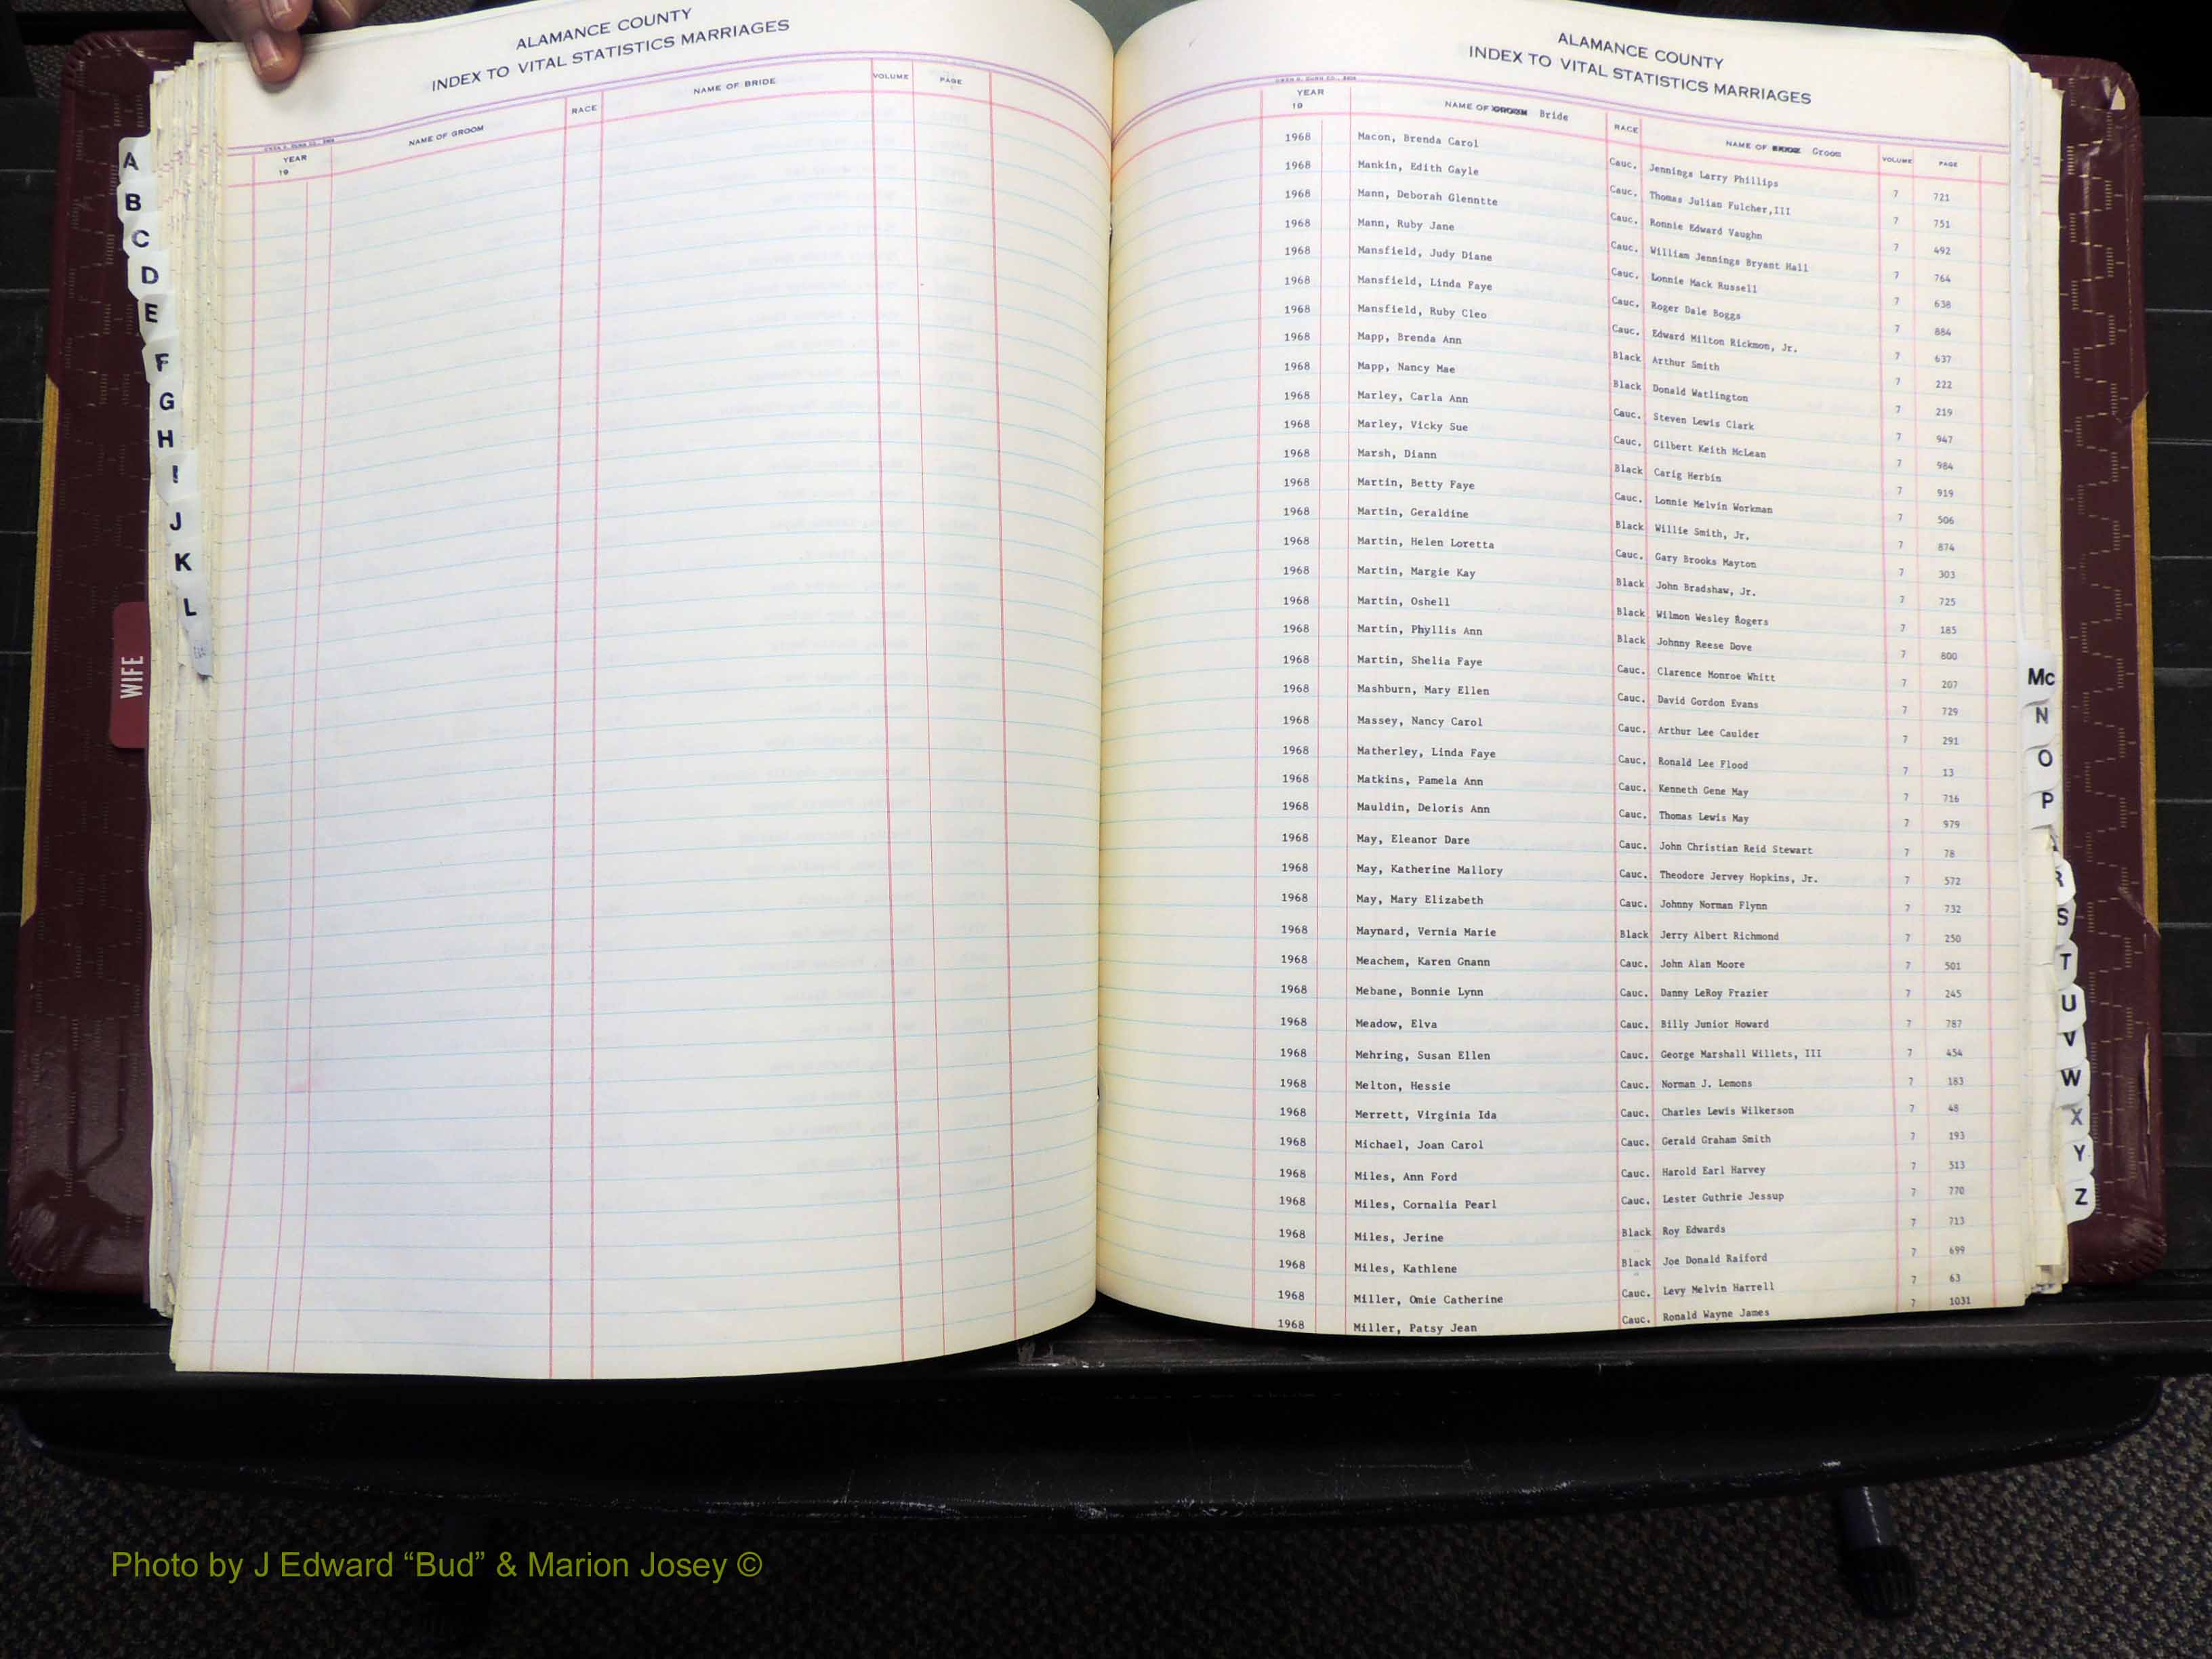 ALAMANCE COUNTY
INDEX TO VITAL STATISTICS MARRIAGES
YEAR 19 NAME OF GROOM RACE NAME OF BRIDE VOLUME PAGE
A
B
C
D
E
F
G
H
I
J
K
L
WIFE
ALAMANCE COUNTY
INDEX TO VITAL STATISTICS MARRIAGES
YEAR 19 NAME OF GROOM Bride RACE NAME OF BRIDE Groom VOLUME PAGE
1968 Macon, Brenda Carol Cauc. Jennings Larry Phillips 7 721
1968 Mankin, Edith Gayle Cauc. Thomas Julian Fulcher,III 7 751
1968 Mann, Deborah Glenntte Cauc. Ronnie Edward Vaughn 7 492
1968 Mann, Ruby Jane Cauc. William Jennings Bryant Hall 7 764
1968 Mansfield, Judy Diane Cauc. Lonnie Mack Russell 7 638
1968 Mansfield, Linda Faye Cauc. Roger Dale Boggs 7 884
1968 Mansfield, Ruby Cleo Cauc. Edward Milton Rickmon, Jr. 7 637
1968 Mapp, Brenda Ann Black Arthur Smith 7 222
1968 Mapp, Nancy Mae Black Donald Watlington 7 219
1968 Marley, Carla Ann Cauc. Steven Lewis Clark 7 947
1968 Marley, Vicky Sue Cauc. Gilbert Keith McLean 7 984
1968 Marsh, Diann Black Carig Herbin 7 919
1968 Martin, Betty Faye Cauc. Lonnie Melvin Workman 7 506
1968 Martin, Geraldine Black Willie Smith, Jr. 7 874
1968 Martin, Helen Loretta Cauc. Gary Brooks Mayton 7 303
1968 Martin, Margie Kay Black John Bradshaw, Jr. 7 725
1968 Martin, Oshell Black Wilmon Wesley Rogers 7 185
1968 Martin, Phyllis Ann Black Johnny Reese Dove 7 800
1968 Martin, Shelia Faye Cauc. Clarence Monroe Whitt 7 207
1968 Mashburn, Mary Ellen Cauc. David Gordon Evans 7 729
1968 Massey, Nancy Carol Cauc. Arthur Lee Caulder 7 291
1968 Matherley, Linda Faye Cauc. Ronald Lee Flood 7 13
1968 Matkins, Pamela Ann Cauc. Kenneth Gene May 7 716
1968 Mauldin, Deloris Ann Cauc. Thomas Lewis May 7 979
1968 May, Eleanor Dare Cauc. John Christian Reid Stewart 7 78
1968 May, Katherine Mallory Cauc. Theodore Jervey Hopkins, Jr. 7 572
1968 May, Mary Elizabeth Cauc. Johnny Norman Flynn 7 732
1968 Maynard, Vernia Marie Black Jerry Albert Richmond 7 250
1968 Meachem, Karen Gnann Cauc. John Alan Moore 7 501
1968 Mebane, Bonnie Lynn Cauc. Danny LeRoy Frazier 7 245
1968 Meadow, Elva Cauc. Billy Junior Howard 7 787
1968 Mehring, Susan Ellen Cauc. George Marshall Willets, III 7 454
1968 Melton, Hessie Cauc. Norman J. Lemons 7 183
1968 Merrett, Virginia Ida Cauc. Charles Lewis Wilkerson 7 48
1968 Michael, Joan Carol Cauc. Gerald Graham Smith 7 193
1968 Miles, Ann Ford Cauc. Harold Earl Harvey 7 513
1968 Miles, Cornalia Pearl Cauc. Lester Guthrie Jessup 7 770
1968 Miles, Jerine Black Roy Edwards 7 713
1968 Miles, Kathlene Black Joe Donald Raiford 7 699
1968 Miller, Omie Catherine Cauc. Levy Melvin Harrell 7 63
1968 Miller, Patsy Jean Cauc. Ronald Wayne James 7 1031
Mc
N
O
P
R
S
T
U
V
W
X
Y
Z
Photo by J Edward “Bud” & Marion Josey ©